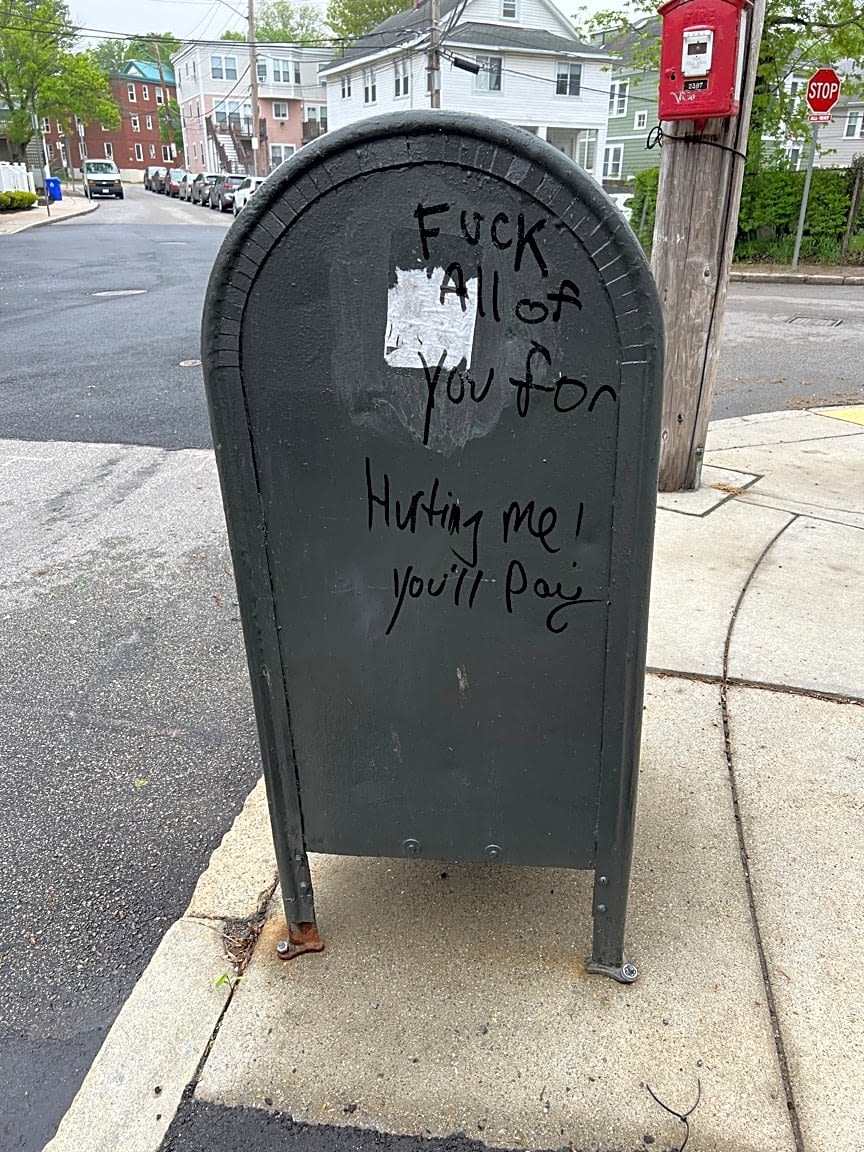 2297
STOP
ALL-WAY
FUCK
All of
you for
Hurting me!
you'll Pay